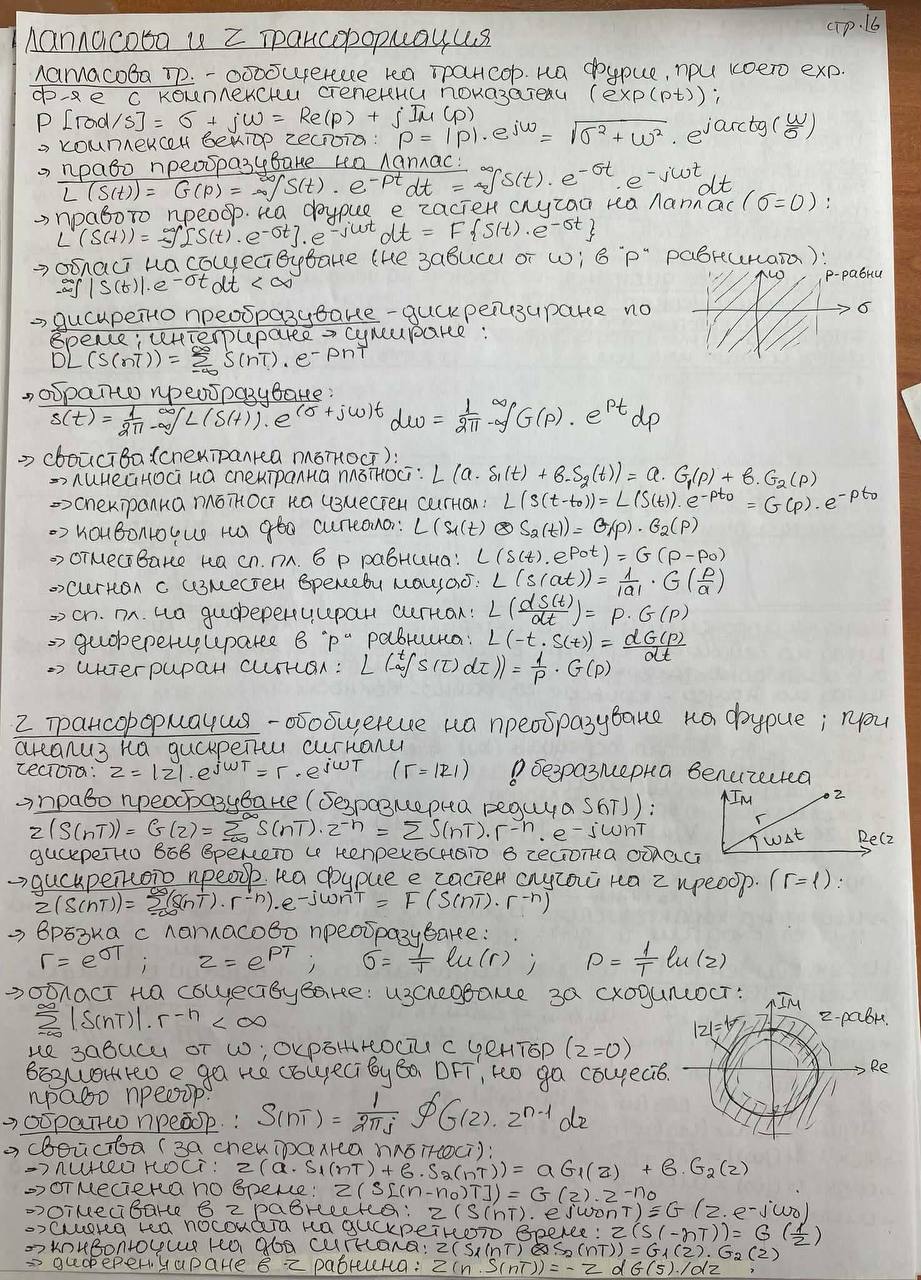 стр.16
Лапласова и Z трансформация
Лапласова тр. - обобщение на трансф. на Фурие, при което exp.
ф-я е с комплексни степенни показатели (exp(pt));
p [rad/s] = σ + jω = Re(p) + jIm(p)
→ комплексен вектор честота: p = |p|.e^jω = √σ²+ω² . e^jarctg(ω/σ)
→ право преобразуване на Лаплас:
L(S(t)) = G(p) = -∞∫∞ S(t).e^-pt dt = -∞∫∞ S(t).e^-σt.e^-jωt dt
→ правото преобр. на Фурие е частен случай на Лаплас (σ=0):
L(S(t)) = -∞∫∞ [S(t).e^-σt].e^-jωt dt = F{S(t).e^-σt}
→ област на съществуване (не зависи от ω; в "p" равнината):
-∞∫∞ |S(t)|.e^-σt dt < ∞
ω p-равни
σ
→ дискретно преобразуване - дискретизиране по
време; интегриране → сумиране:
DL(S(nT)) = ∞Σ-∞ S(nT).e^-pnT
→ обратно преобразуване:
s(t) = 1/2π -∞∫∞ L(S(t)).e^(σ+jω)t dω = 1/2π -∞∫∞ G(p).e^pt dp
→ свойства (спектрална плътност):
⇒ линейност на спектрална плътност: L(a.S1(t) + b.S2(t)) = a.G1(p) + b.G2(p)
⇒ спектрална плътност на изместен сигнал: L(S(t-t0)) = L(S(t)).e^-pt0 = G(p).e^-pt0
⇒ конволюция на два сигнала: L(S1(t) ⊗ S2(t)) = G1(p).G2(p)
⇒ отместване на сп. пл. в p равнина: L(S(t).e^p0t) = G(p-p0)
⇒ сигнал с изместен времеви мащаб: L(S(at)) = 1/|a| . G(p/a)
⇒ сп. пл. на диференциран сигнал: L(dS(t)/dt) = p.G(p)
⇒ диференциране в "p" равнина: L(-t.S(t)) = dG(p)/dt
⇒ интегриран сигнал: L(-∞∫t S(τ)dτ)) = 1/p . G(p)
Z трансформация - обобщение на преобразуване на Фурие; при
анализ на дискретни сигнали
честота: z = |z|.e^jωT = r.e^jωT (r=|z|) ! безразмерна величина
→ право преобразуване (безразмерна редица S(nT)):
z(S(nT)) = G(z) = ∞Σ-∞ S(nT).z^-n = Σ S(nT).r^-n.e^-jωnT
дискретно във времето и непрекъснато в честотна област
Im z
r
ωΔt Re(z
→ дискретното преобр. на Фурие е частен случай на z преобр. (r=1):
z(S(nT)) = ∞Σ-∞(S(nT).r^-n).e^-jωnT = F(S(nT).r^-n)
→ връзка с Лапласово преобразуване:
r = e^σT ; z = e^pT ; σ = 1/T ln(r) ; p = 1/T ln(z)
→ област на съществуване: изследваме за сходимост:
∞Σ-∞ |S(nT)|.r^-n < ∞
не зависи от ω; окръжности с център (z=0)
възможно е да не съществува DFT, но да съществ.
право преобр.
Im
|z|=1 z-равн.
Re
→ обратно преобр.: S(nT) = 1/2πj ∮G(z).z^n-1 dz
→ свойства (за спектрална плътност):
⇒ линейност: z(a.S1(nT) + b.S2(nT)) = aG1(z) + b.G2(z)
⇒ отместена по време: z(S[(n-n0)T]) = G(z).z^-n0
⇒ отместване в z равнина: z(S(nT).e^jω0nT) = G(z.e^-jω0)
⇒ смяна на посоката на дискретното време: z(S(-nT)) = G(1/z)
⇒ конволюция на два сигнала: z(S1(nT) ⊗ S2(nT)) = G1(z).G2(z)
⇒ диференциране в z равнина: z(n.S(nT)) = -z dG(5)./dz ;